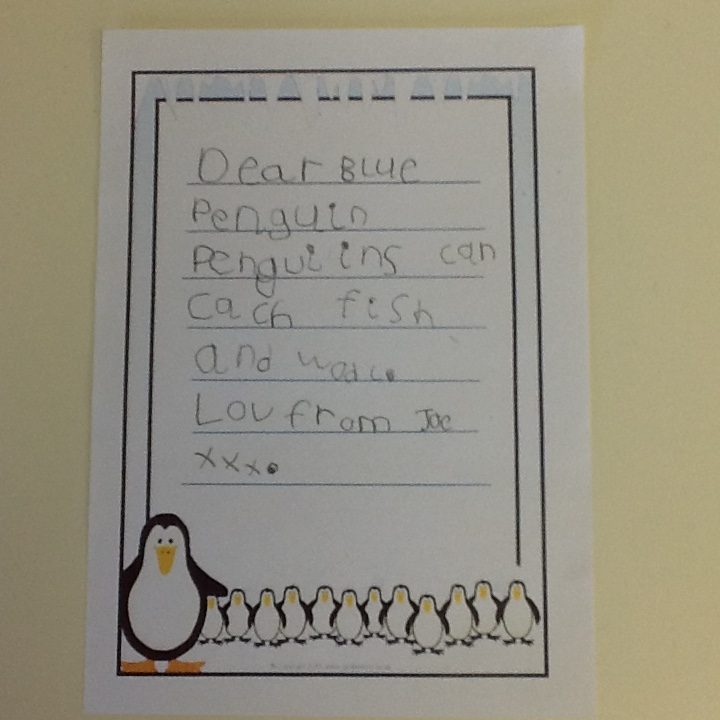 Dear Blue
Penguin
Penguiins can
cach fish
and
Lov from Joe
xxx.